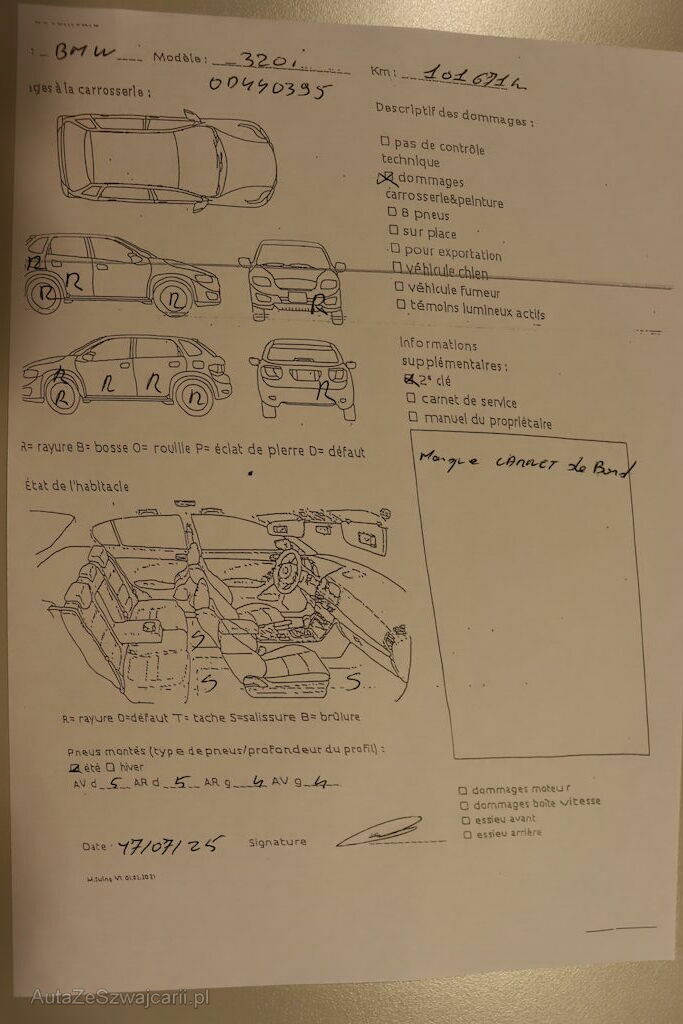 : BMW Modèle : 320i Km : 101671h
OD440395
ges à la carrosserie :
Descriptif des dommages :
pas de contrôle
technique
dommages
carrosserie&peinture
8 pneus
sur place
pour exportation
véhicule chien
véhicule fumeur
témoins lumineux actifs
R
R
R
R
R
R
R
R
R
R
R
Informations
supplémentaires :
2ᵉ clé
carnet de service
manuel du propriétaire
R= rayure B= bosse O= rouille P= éclat de pierre D= défaut
Manque CARNET de Bord
État de l'habitacle
S
S
S
R= rayure O=défaut T= tache S=salissure B= brûlure
Pneus montés (type de pneus/profondeur du profil) :
été hiver
AV d 5 AR d 5 AR g 4 AV g 4
dommages moteur
dommages boîte vitesse
essieu avant
essieu arrière
Date : 17/07/25 Signature
M.Suing V1 01.01.2021
AutaZeSzwajcarii.pl